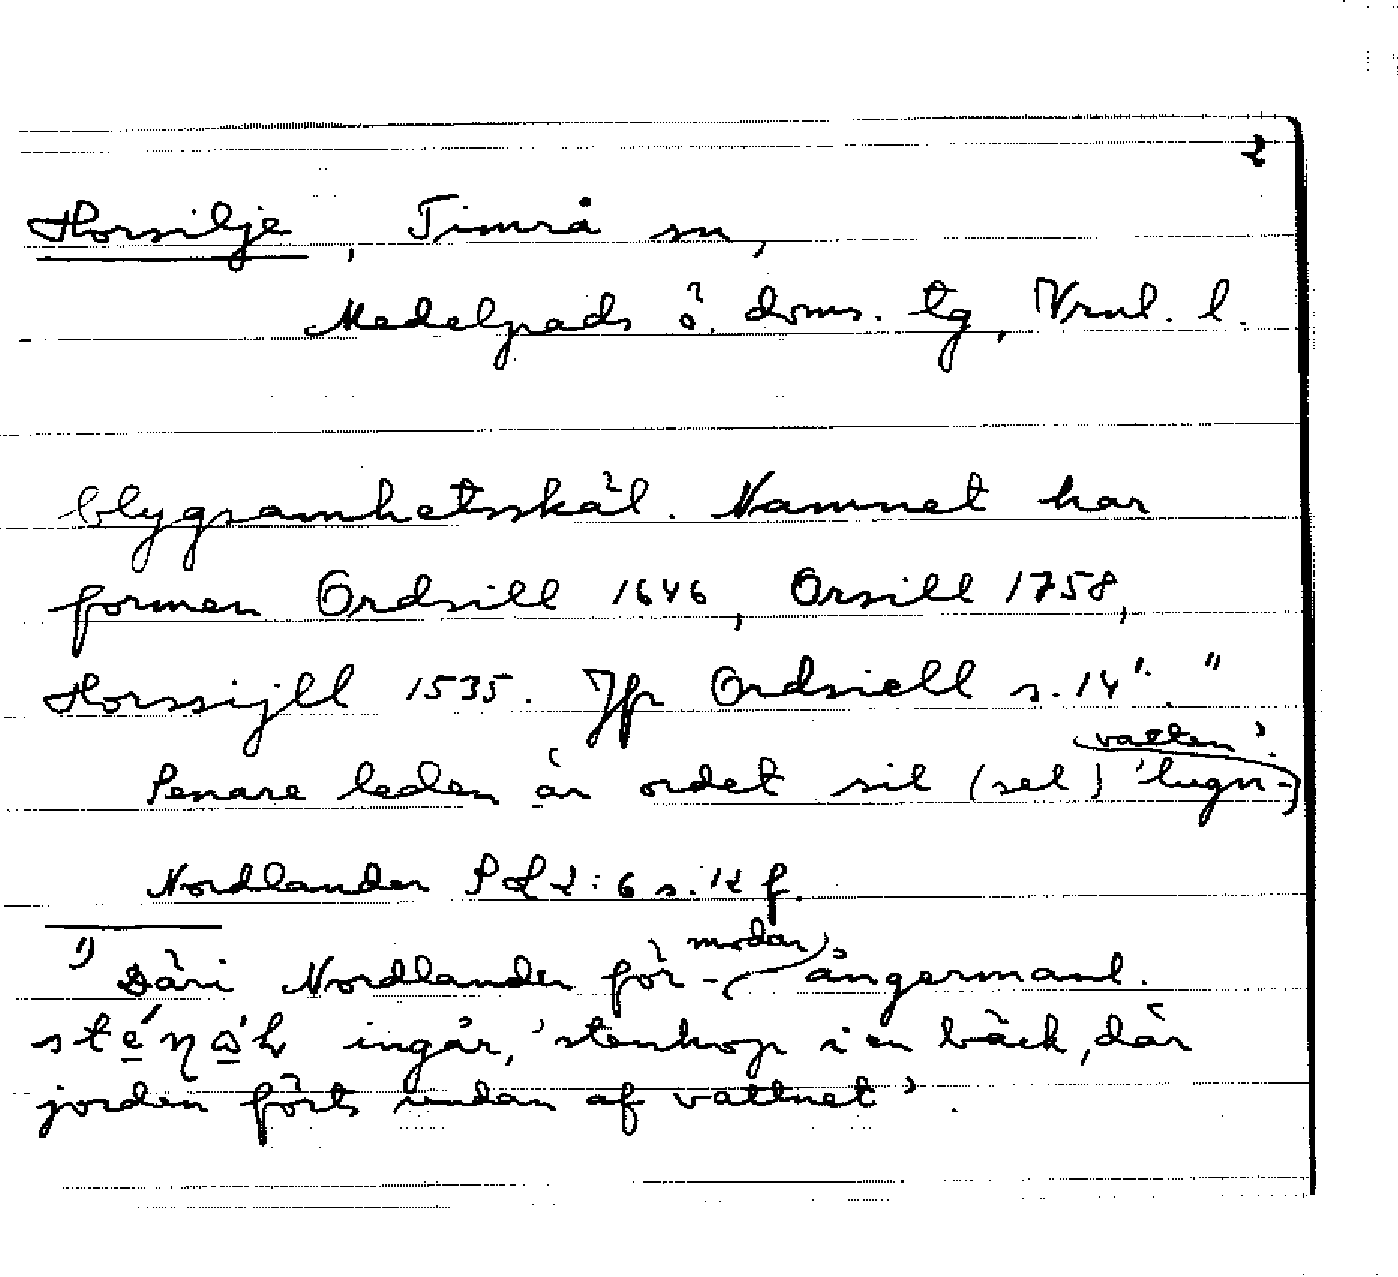 2
Horsilje, Timrå sn,
Medelpads ö. doms. tg, Vrnl. l.
blygsamhetsskäl. Namnet har
formen Ordsill 1646, Orsill 1758,
Horssijll 1535. Jfr Ordsiell s. 14". "
Senare leden är ordet sil (sel) 'lugn-
vatten'.
Nordlander NoB 2:6 s. 12 f.
1) Däri Nordlander för-
modar, ångermanl.
ingår, 'stenhop i en bäck, där
jorden förts undan af vattnet'.